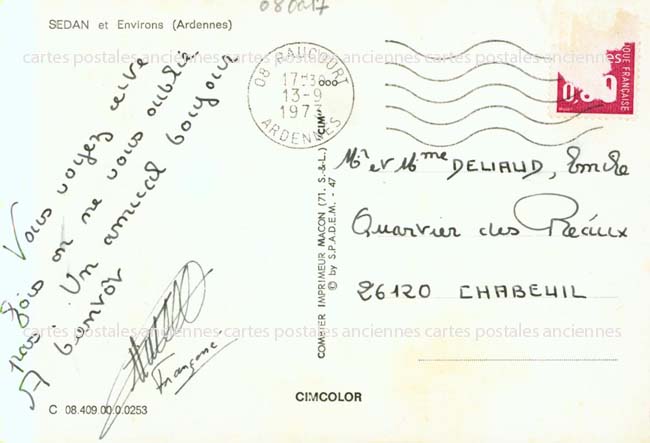 080017
SEDAN et Environs (Ardennes)
cartes postales anciennes cartes postales anciennes cartes postales anciennes
08 RAUCOURT
17H30
13-9
197
ARDENNES
QUE FRANÇAISE
0,80
Vous voyez cette
fois on ne vous oublie
pas. Un amical bonjour
A bientôt
Françoise
COMBIER IMPRIMEUR MACON (71. S.-&-L.) CIM
© by S.P.A.D.E.M. - 47
Mr et Mme DELIAUD, Emile
Quartier des Réaux
26120 CHABEUIL
cartes postales anciennes cartes postales anciennes cartes postales anciennes
CIMCOLOR
C 08.409.00.0.0253